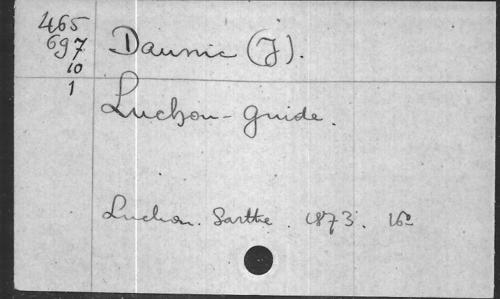 465
697
10
1
Daunic (J).
Luchon-guide.
Luchon. Sarthe. 1873. 16º